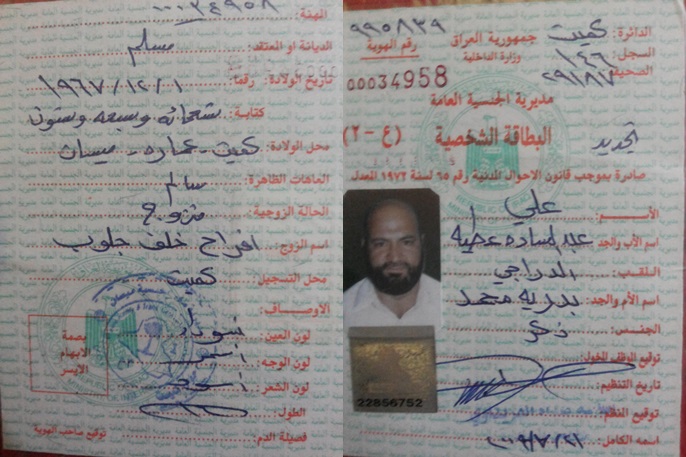 جمهورية العراق
وزارة الداخلية
مديرية الجنسية العامة
الدائرة: كميت
السجل: ١٤٦
الصحيفة: ٢٩١٨١٧
٩٩٥٨٣٩
رقم الهوية
00034958
البطاقة الشخصية (ع - ٢)
تجديد
صادرة بموجب قانون الاحوال المدنية رقم ٦٥ لسنة ١٩٧٢ المعدل
الأسم: علي
اسم الأب والجد: عبد الساده عطيه
اللقب: الدراجي
اسم الأم والجد: بدريه محمد
الجنس: ذكر
توقيع الموظف المخول:
تاريخ التنظيم:
توقيع المنظم:
اسمه الكامل:
22856752
المهنة:
الديانة او المعتقد: مسلم
تاريخ الولادة: رقما: ١٩٦٧/١٢/١
كتابة: وسبعه وستون
محل الولادة: كميت - عماره - ميسان
العاهات الظاهرة: سالم
الحالة الزوجية: متزوج
اسم الزوج: افراح خلف جلوب
محل التسجيل: كميت
الأوصاف:
لون العين:
لون الوجه:
لون الشعر:
الطول:
فصيلة الدم:
توقيع صاحب الهوية
بصمة
الابهام
الايسر